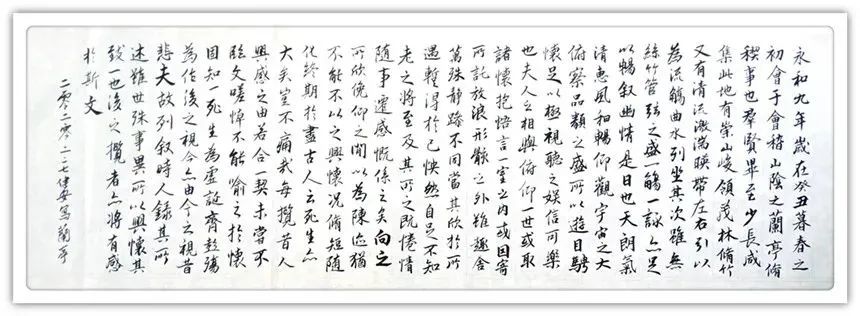 永和九年歲在癸丑暮春之
初會于會稽山陰之蘭亭脩
稧事也羣賢畢至少長咸
集此地有崇山峻領茂林脩竹
又有清流激湍暎帶左右引以
為流觴曲水列坐其次雖無
絲竹管弦之盛一觴一詠亦足
以暢叙幽情是日也天朗氣
清惠風和暢仰觀宇宙之大
俯察品類之盛所以遊目騁
懷足以極視聽之娛信可樂
也夫人之相與俯仰一世或取
諸懷抱悟言一室之內或因寄
所託放浪形骸之外雖趣舍
萬殊靜躁不同當其欣於所
遇暫得於己怏然自足不知
老之將至及其所之既惓情
隨事遷感慨係之矣向之
所欣俛仰之間以為陳迹猶
不能不以之興懷況脩短隨
化終期於盡古人云死生亦
大矣豈不痛哉每攬昔人
興感之由若合一契未嘗不
臨文嗟悼不能喻之於懷
固知一死生為虛誕齊彭殤
為作後之視今亦由今之視昔
悲夫故列叙時人錄其所
述雖世殊事異所以興懷其
致一也後之攬者亦將有感
於斯文
二零二零二七安寫蘭亭